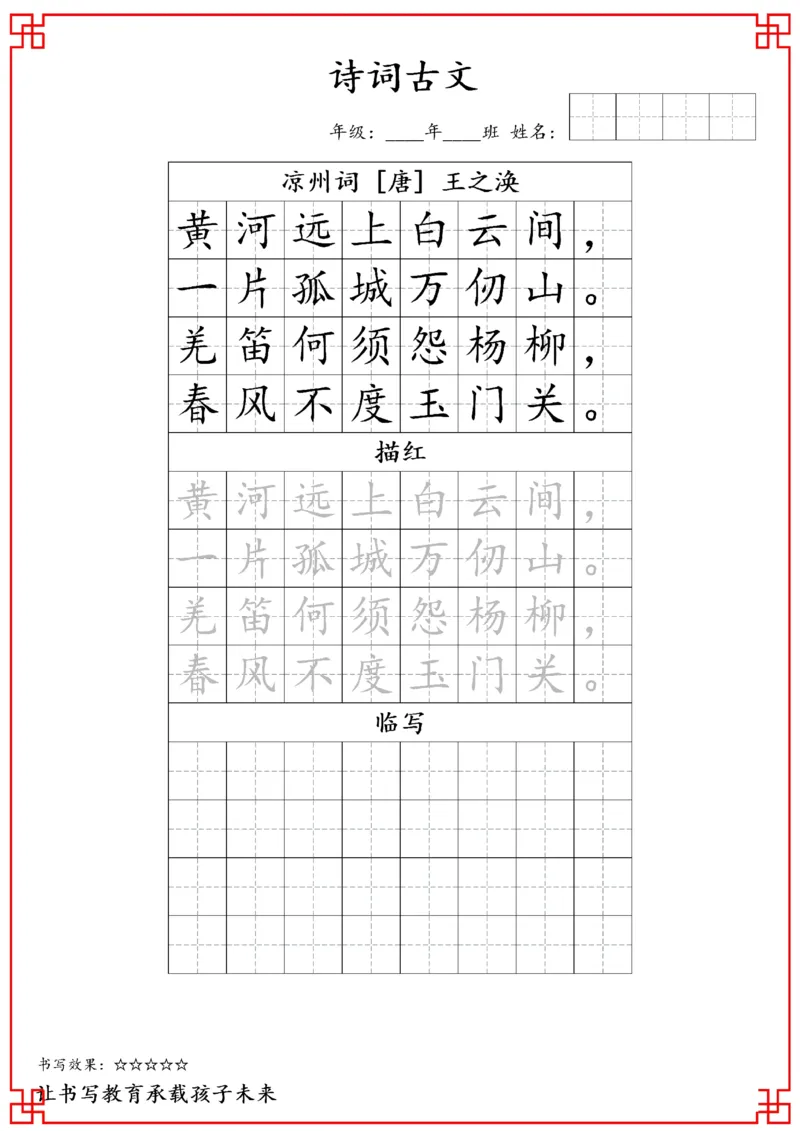 诗词古文
年级：____年____班 姓名：
凉州词［唐］王之涣
黄河远上白云间，
一片孤城万仞山。
羌笛何须怨杨柳，
春风不度玉门关。
描红
黄河远上白云间，
一片孤城万仞山。
羌笛何须怨杨柳，
春风不度玉门关。
临写
书写效果：☆☆☆☆☆
让书写教育承载孩子未来